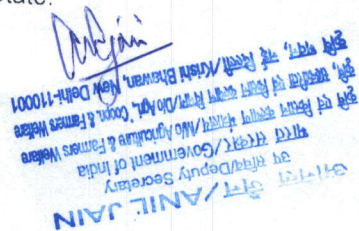 अनिल जैन/ANIL JAIN
उप सचिव/Deputy Secretary
भारत सरकार/Government of India
कृषि एवं किसान कल्याण मंत्रालय/M/o Agriculture & Farmers Welfare
कृषि, सहकारिता एवं किसान कल्याण विभाग/D/o Agri., Coopn. & Famers Welfare
कृषि भवन, नई दिल्ली/Krishi Bhawan, New Delhi-110001